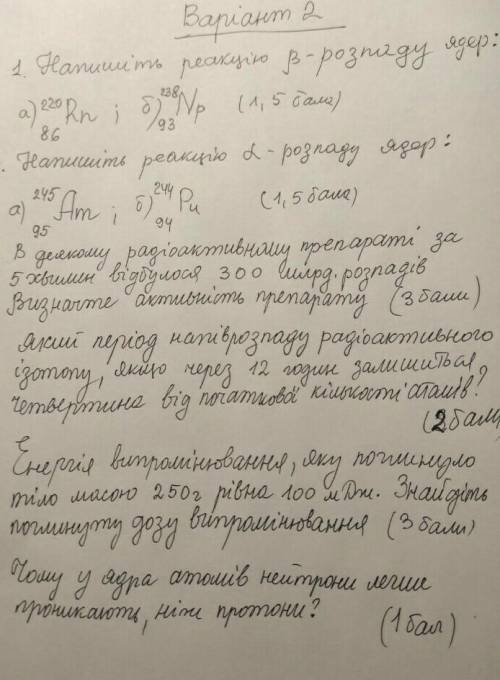 Варіант 2
1. Напишіть реакцію β-розпаду ядер:
а) ²²⁰₈₆Rn ; б) ²³⁸₉₃Np (1,5 бала)
. Напишіть реакцію α-розпаду ядер:
а) ²⁴⁵₉₅Am ; б) ²⁴⁴₉₄Pu (1,5 бала)
В деякому радіоактивному препараті за
5 хвилин відбулося 300 млрд. розпадів
Визначте активність препарату (3 бали)
Який період напіврозпаду радіоактивного
ізотопу, якщо через 12 годин залишиться
четвертина від початкової кількості атомів?
(2 бали)
Енергія випромінювання, яку поглинуло
тіло масою 250г рівна 100 мДж. Знайдіть
поглинуту дозу випромінювання (3 бали)
Чому у ядра атомів нейтрони легше
проникають, ніж протони?
(1 бал)